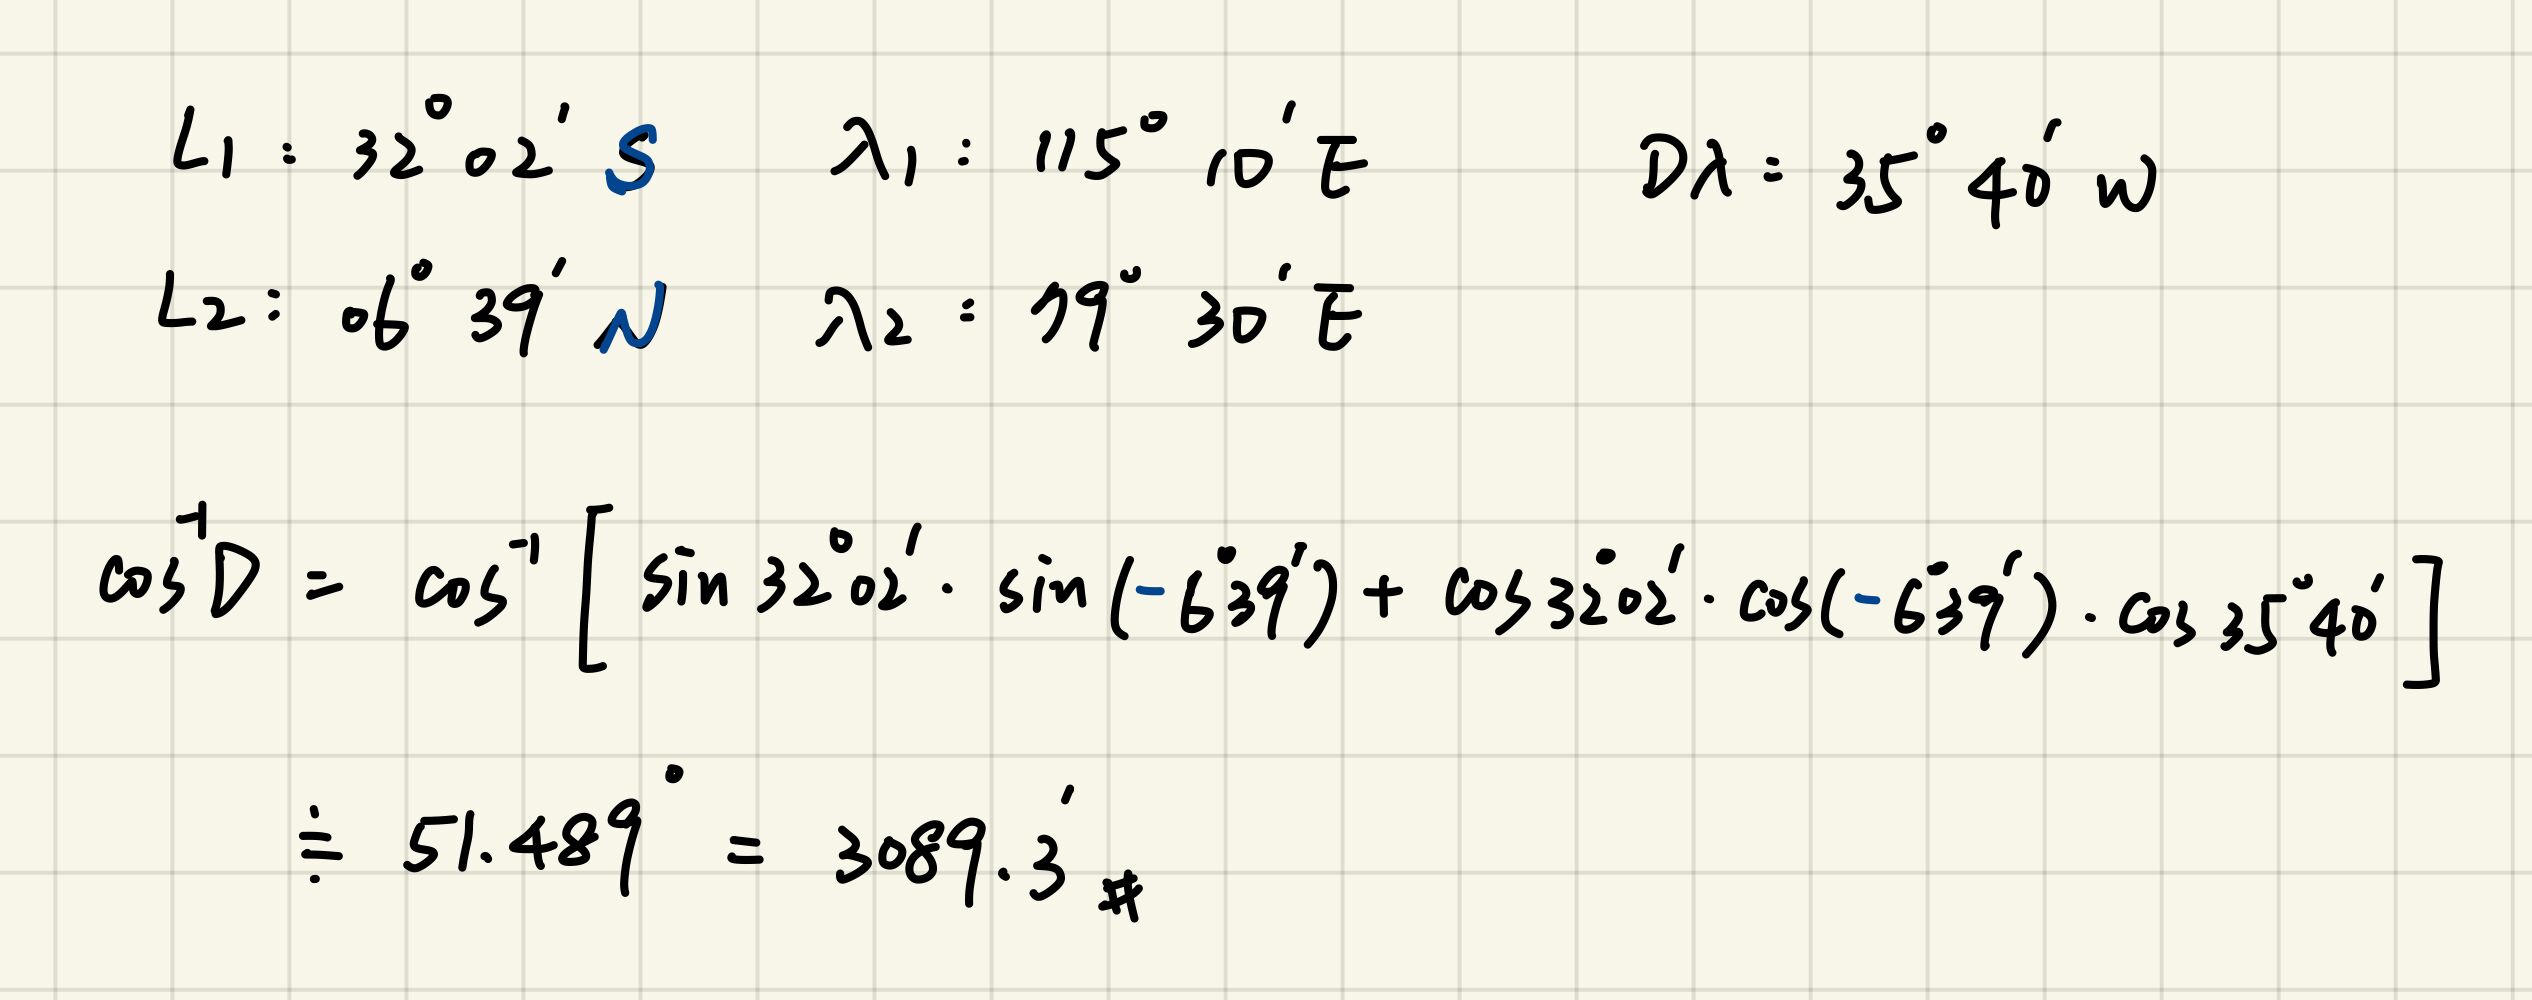 L1 : 32° 02' S λ1 : 115° 10' E Dλ : 35° 40' W
L2 : 06° 39' N λ2 : 79° 30' E
cos⁻¹D = cos⁻¹ [ sin 32°02' · sin (-6°39') + cos 32°02' · cos(-6°39') · cos 35°40' ]
≑ 51.489° = 3089.3' #